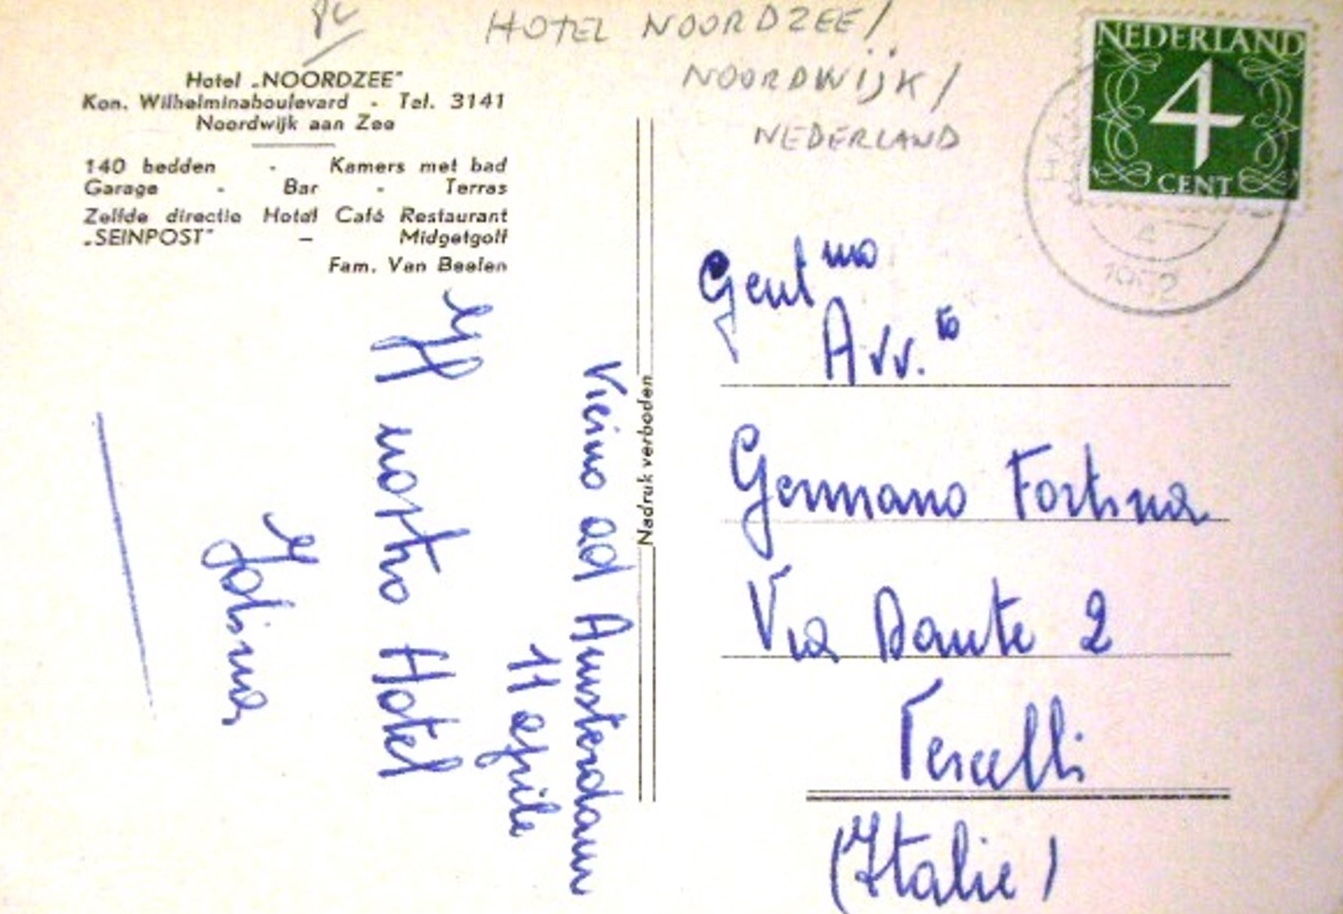 HOTEL NOORDZEE/
NOORDWIJK/
NEDERLAND
NEDERLAND
4
CENT
1952
Hotel „NOORDZEE"
Kon. Wilhelminaboulevard - Tel. 3141
Noordwijk aan Zee
140 bedden - Kamers met bad
Garage - Bar - Terras
Zelfde directie Hotel Café Restaurant
„SEINPOST" - Midgetgolf
Fam. Van Beelen
Vicino ad Amsterdam
11 aprile
Il nostro Hotel
Nadruk verboden
Gent mo
Avv. to
Germano Fortina
Via Dante 2
Vercelli
(Italie)